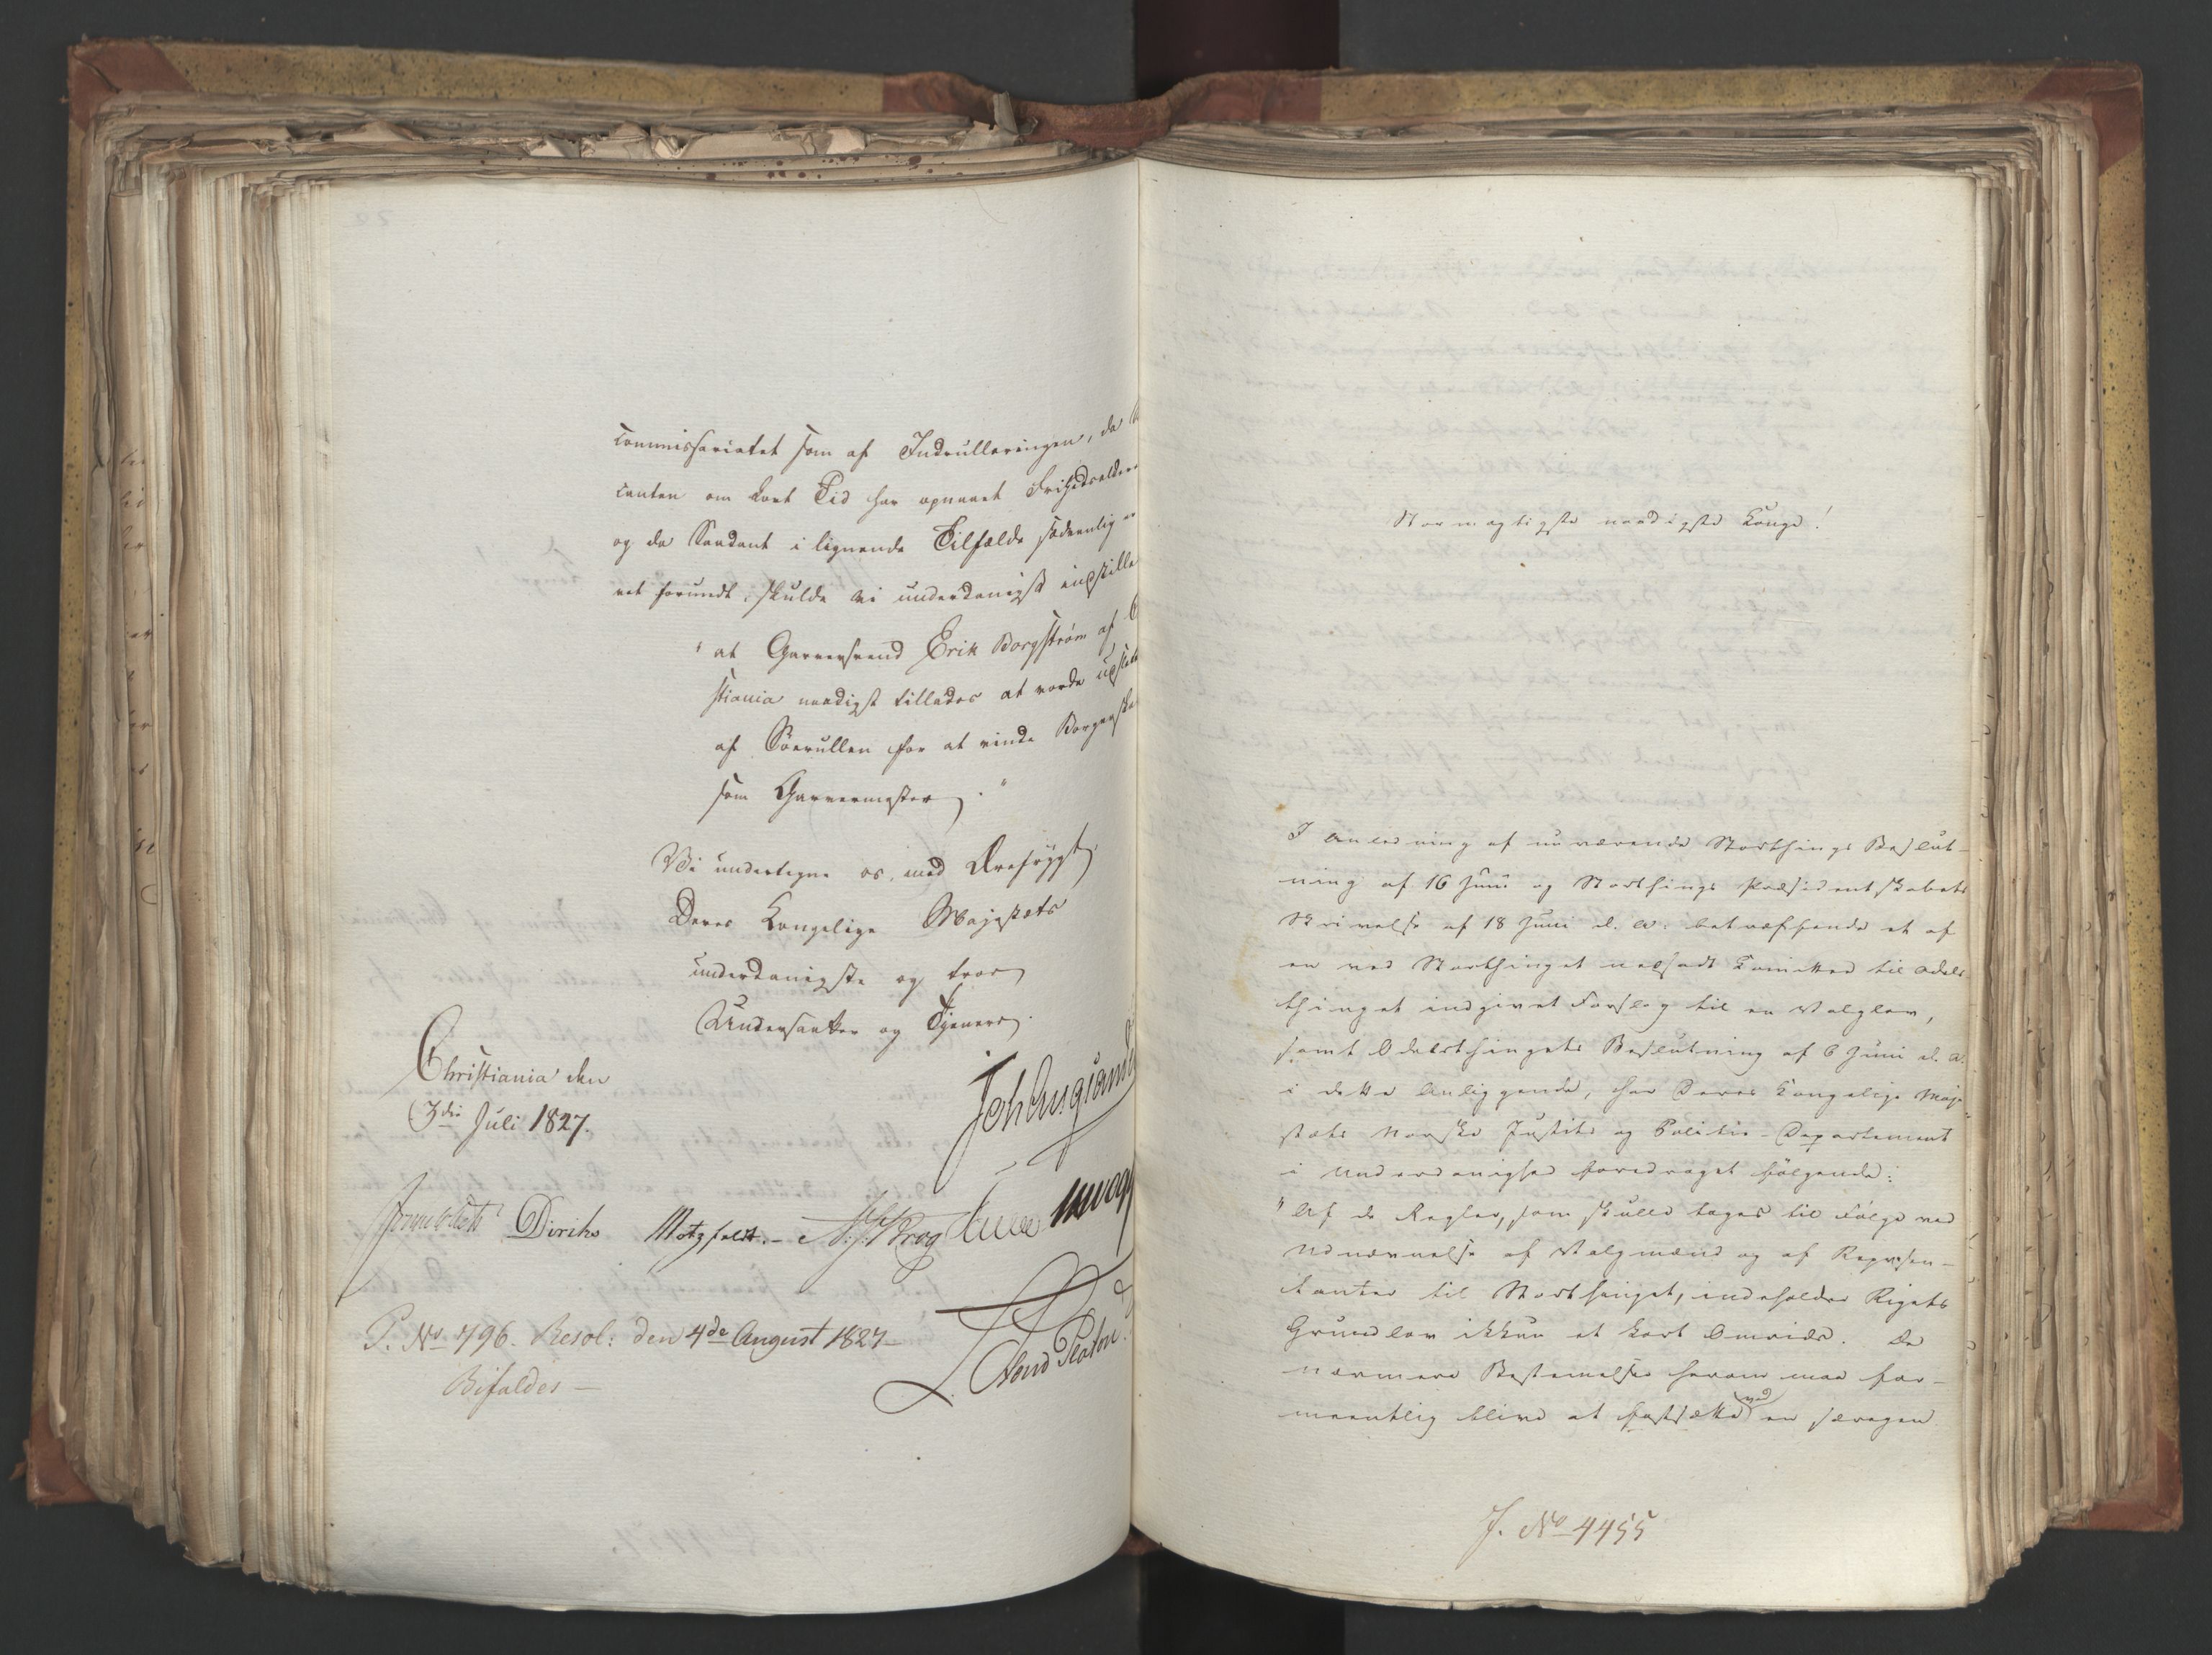 Commissariatet som af Indrulleringen, da
canten om kort Tid har opnaaet Frihedsalder
og da Saadant i lignende Tilfælde sædvanlig er
ret forundt, skulde vi underdanigst indstille
"at Garversvend Erik Borgstrøm af C
stiania naadigst tillades at vorde udslettet
af Søerullen for at vinde Borgerska
som Garvermester."
Vi undertegne os, med Ærefrygt,
Deres Kongelige Majestæts
underdanigste og troe
Undersaatter og Tjenere.
Christiania den
3die Juli 1827.
Diriks Motzfeldt. Krog
P. No 796. Resol: den 4de August 1827
Bifaldes —
Stormægtigste naadigste Konge!
I Anledning af nuværende Storthings Beslut-
ning af 16 Juni og Storthings Præsidentskabets
Skrivelse af 18 Juni d. A. betræffende et af
en ved Storthinget nedsadt Comitteé til Odels
thinget indgivet Forslag til en Valglov,
samt Odelsthingets Beslutning af 6 Juni d. A.
i dette Anliggende, har Deres Kongelige Maje-
stæts Norske Justits og Politie-Departement
i Underdanighed foredraget følgende:
"Af de Regler, som skulle tages til Følge ved
Udnævnelse af Valgmænd og af Repræsen-
tanter til Storthinget, indeholder Rigets
Grundlov ikkun et kort Omrids. De
nærmere Bestemmelser herom maa for-
meentlig blive at fastsætte ved en særegen
J. No 4455